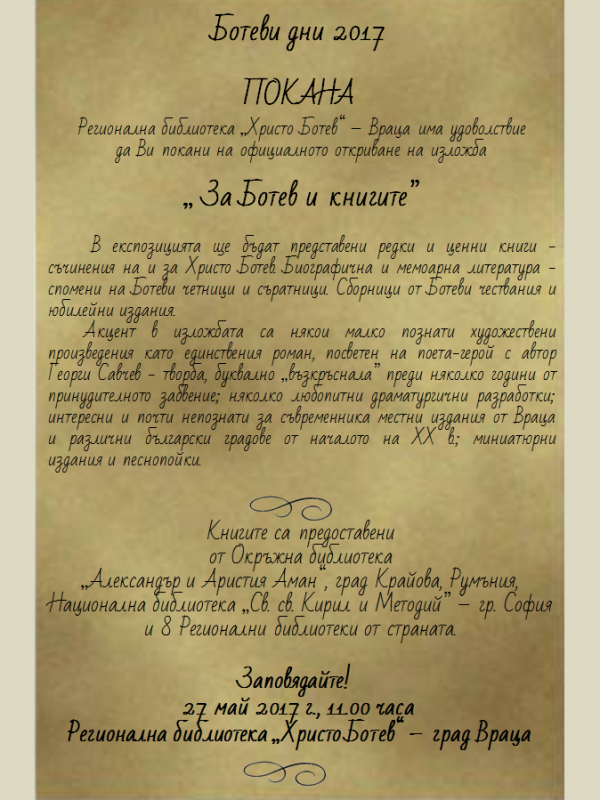 Ботеви дни 2017
ПОКАНА
Регионална библиотека „Христо Ботев“ – Враца има удоволствие
да Ви покани на официалното откриване на изложба
„За Ботев и книгите”
В експозицията ще бъдат представени редки и ценни книги -
съчинения на и за Христо Ботев. Биографична и мемоарна литература -
спомени на Ботеви четници и съратници. Сборници от Ботеви чествания и
юбилейни издания.
Акцент в изложбата са някои малко познати художествени
произведения като единствения роман, посветен на поета-герой с автор
Георги Савчев - творба, буквално „възкръснала” преди няколко години от
принудителното забвение; няколко любопитни драматургични разработки;
интересни и почти непознати за съвременника местни издания от Враца
и различни български градове от началото на ХХ в.; миниатюрни
издания и песнопойки.
Книгите са предоставени
от Окръжна библиотека
„Александър и Аристия Аман“, град Крайова, Румъния,
Национална библиотека „Св. св. Кирил и Методий” – гр. София
и 8 Регионални библиотеки от страната.
Заповядайте!
27 май 2017 г., 11.00 часа
Регионална библиотека „Христо Ботев“ – град Враца